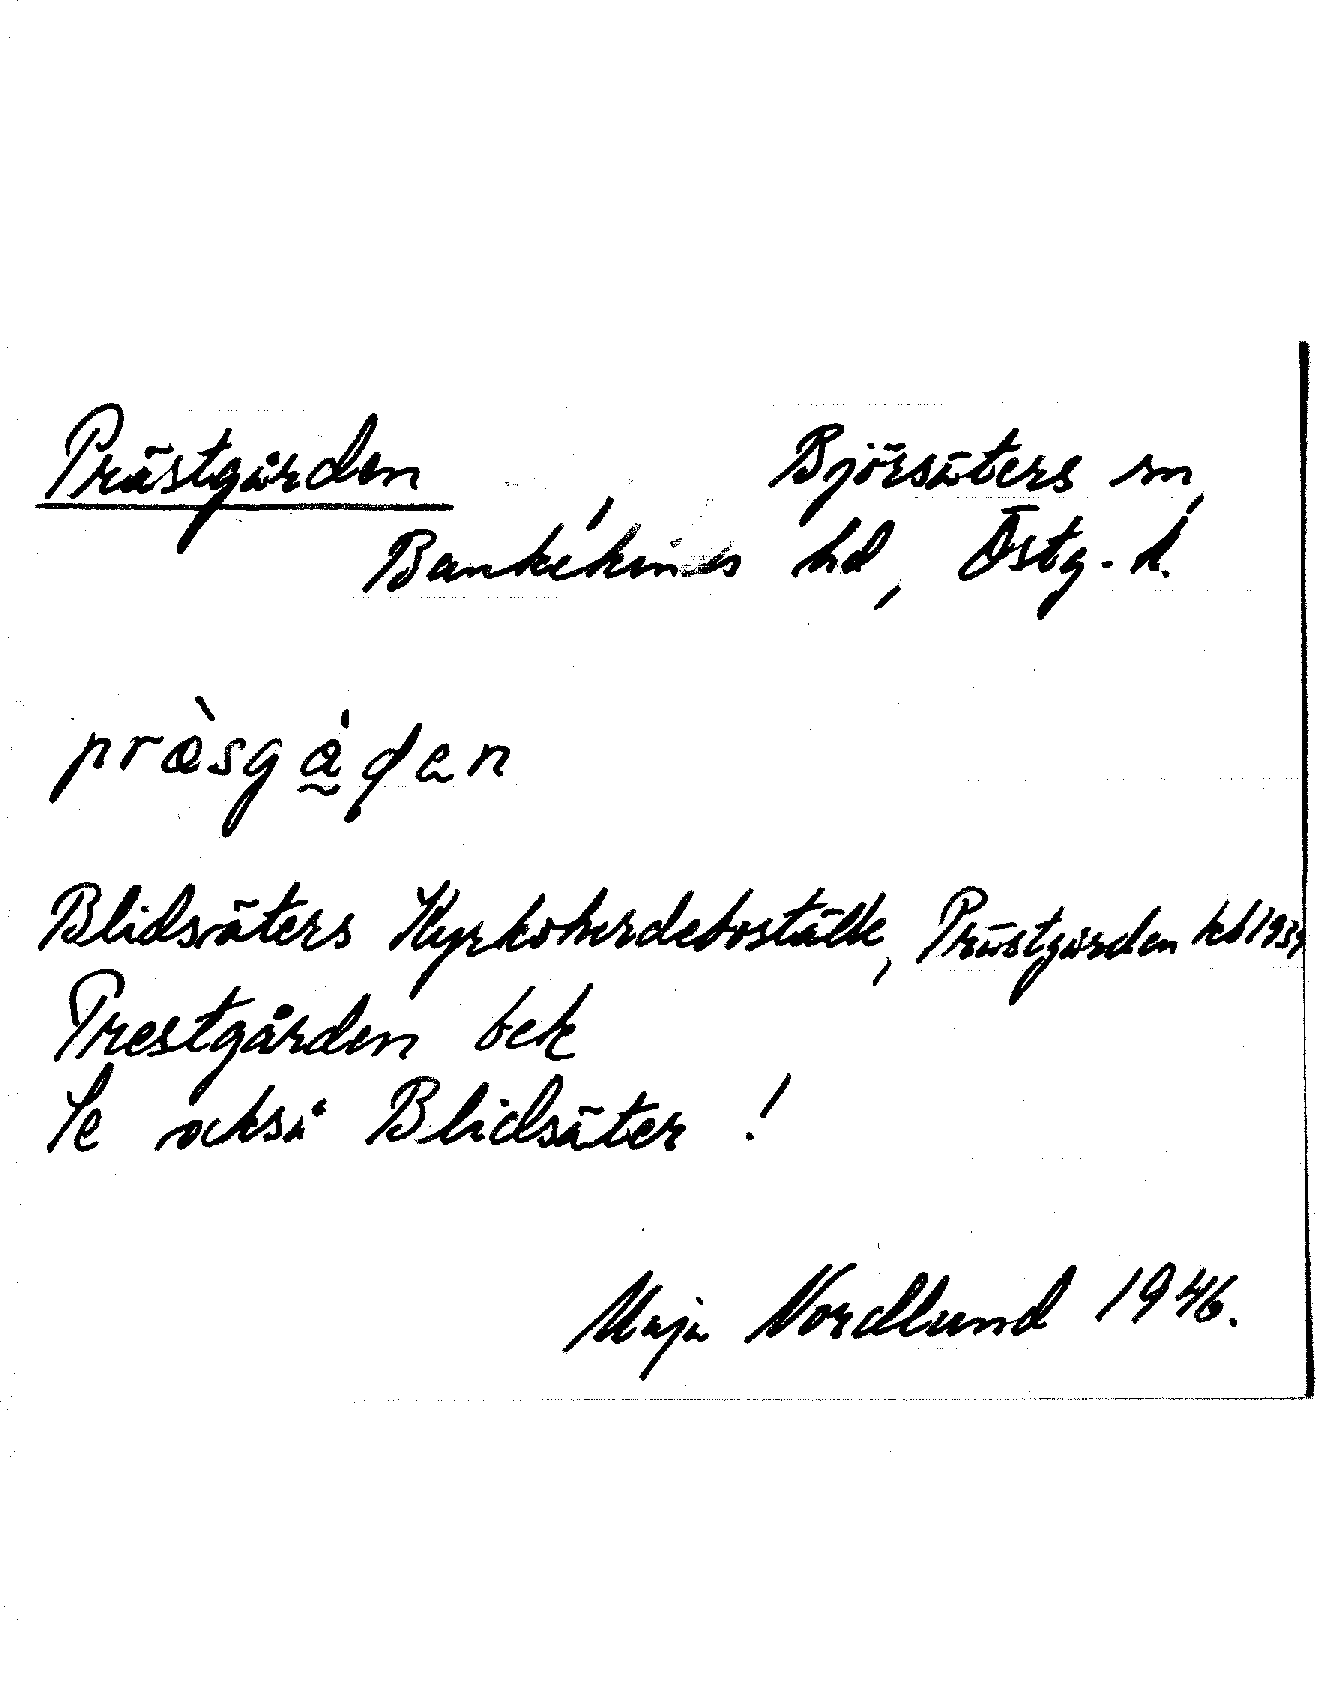 Prästgården, Björsäters sn,
Bankekinds hd, Östg. l.
pràsgå̰den
Blidsäters Kyrkoherdeboställe, Prästgården
Prestgården bek
Se också Blidsäter !
Maja Nordlund 1946.